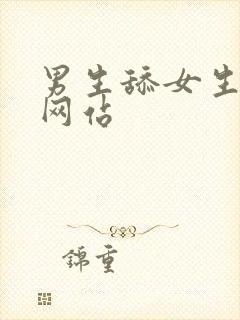 男生舔女生
网站
锦重